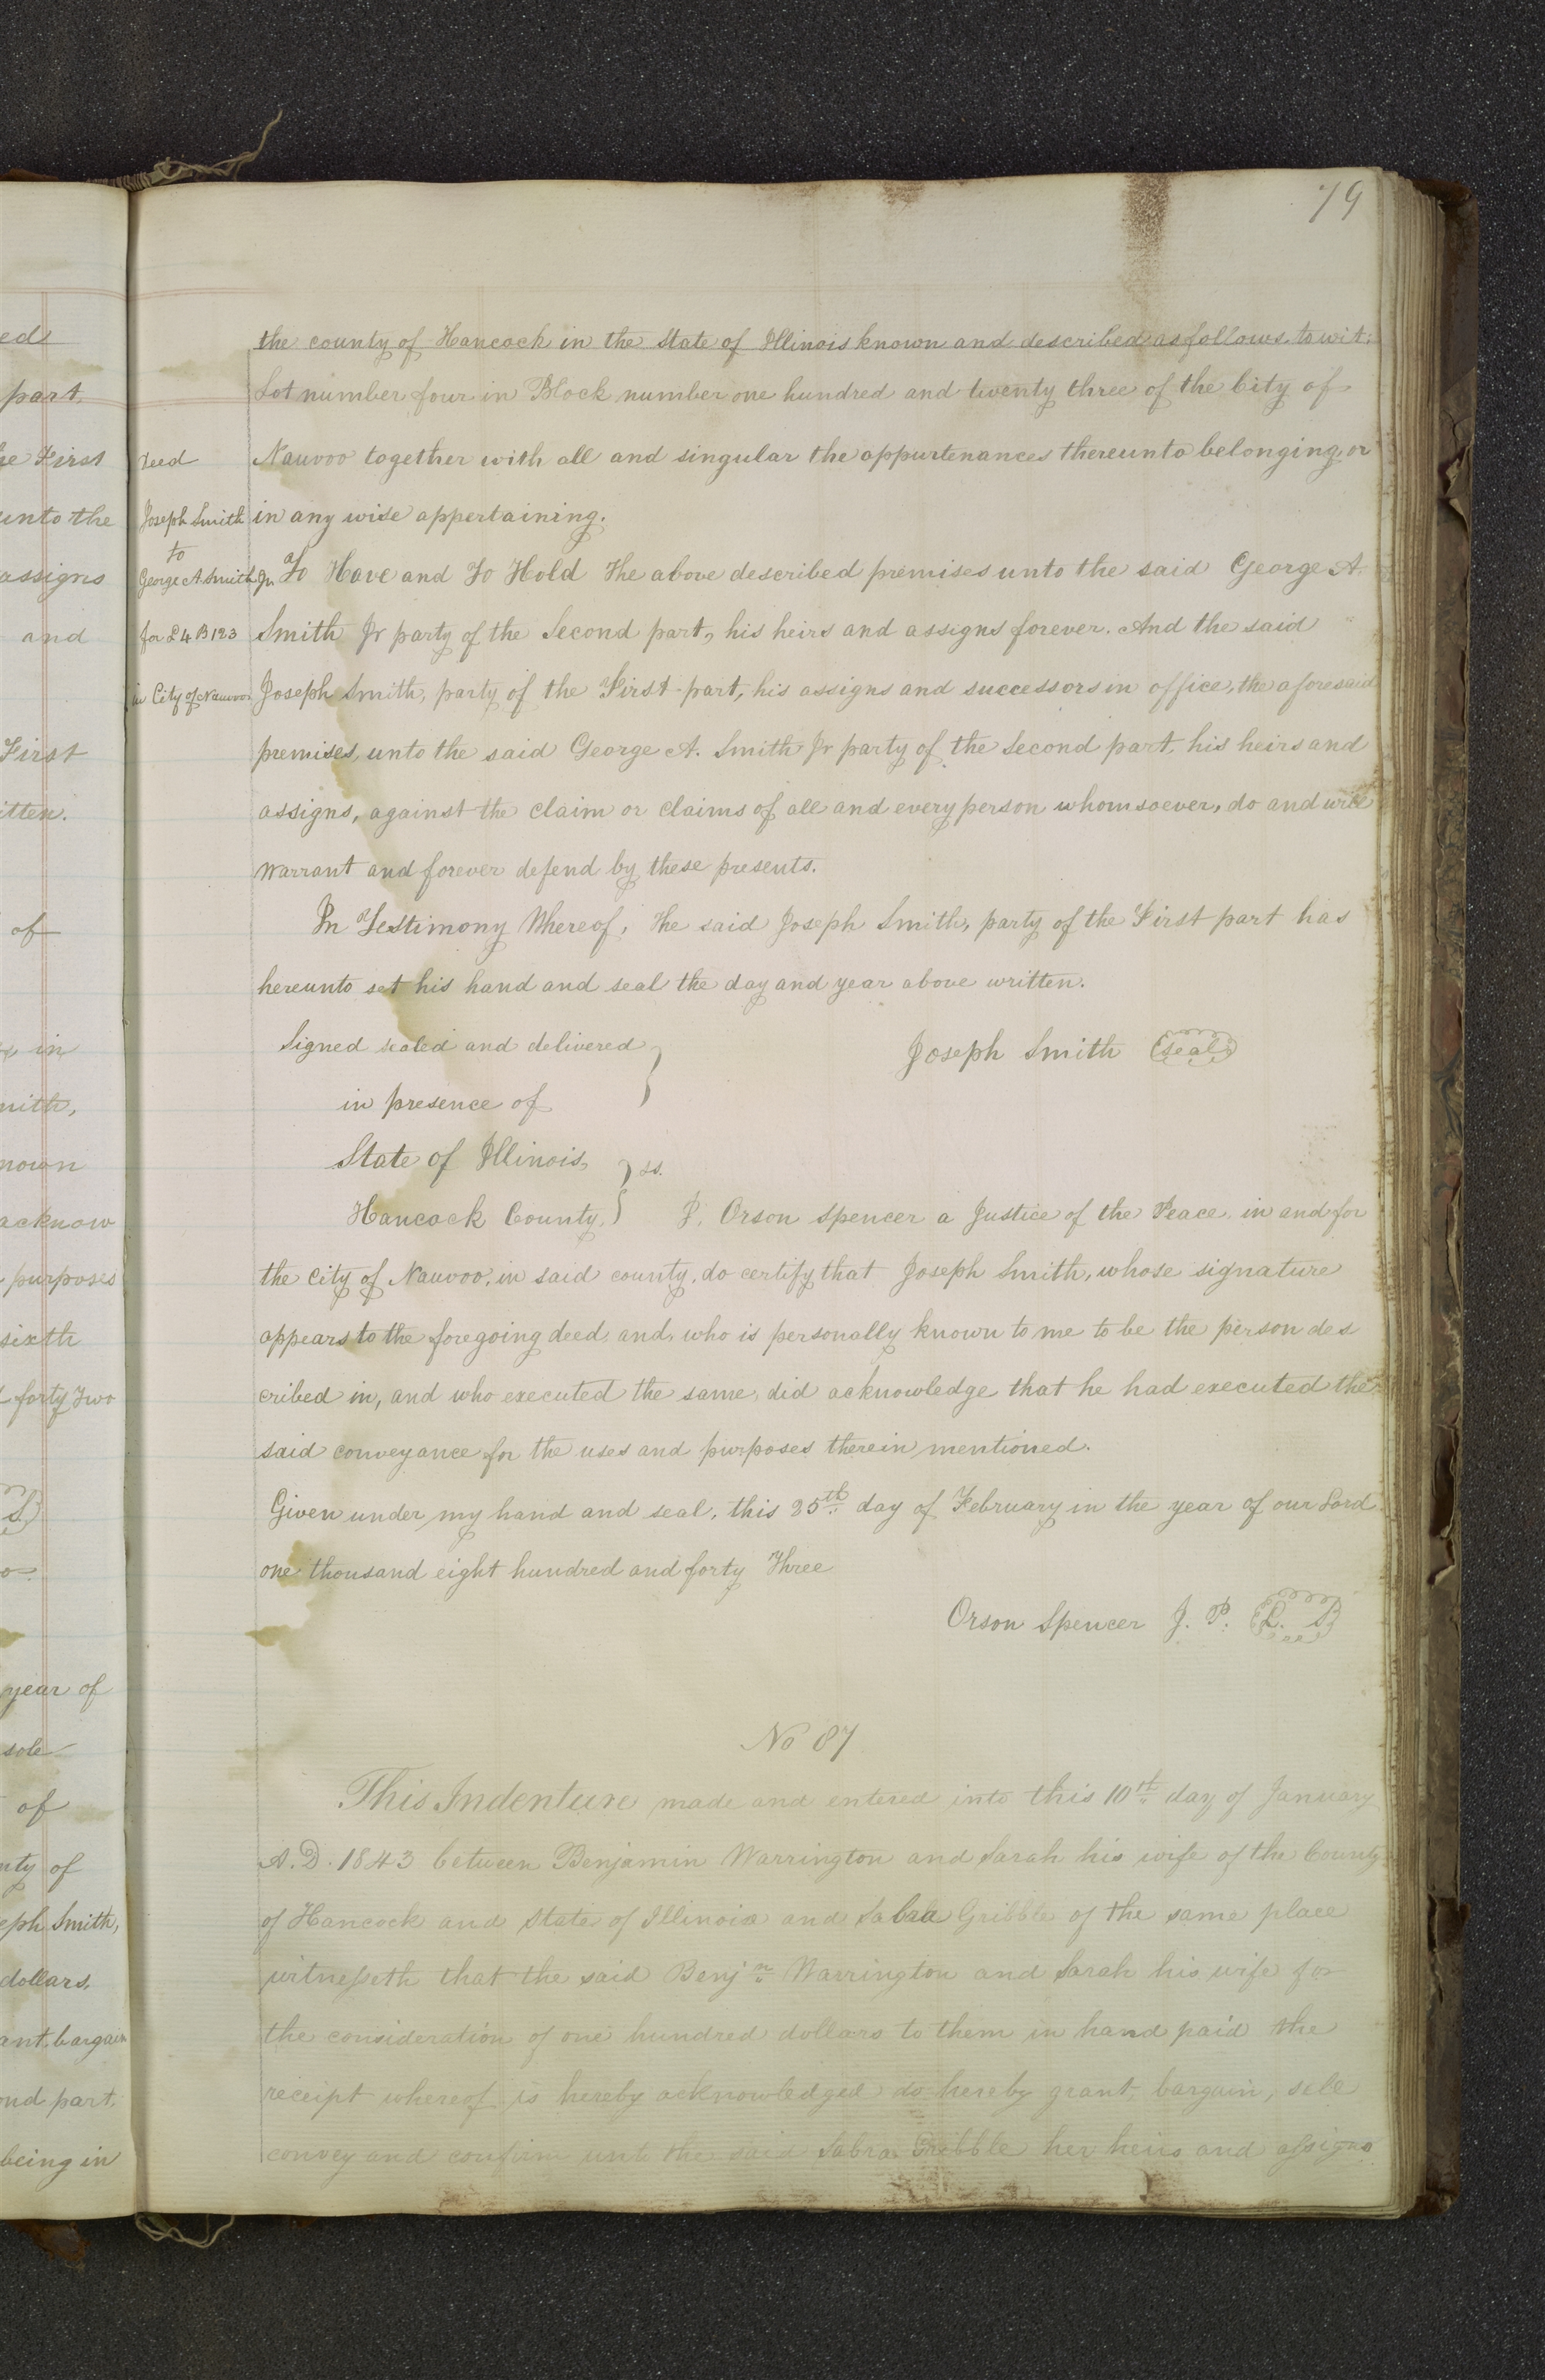 79
the county of Hancock in the State of Illinois known and described as follows, to wit:
Lot number four in Block number one hundred and twenty three of the City of
Nauvoo together with all and singular the appurtenances thereunto belonging, or
in any wise appertaining.
To Have and To Hold The above described premises unto the said George A.
Smith Jr party of the Second part, his heirs and assigns forever. And the said
Joseph Smith, party of the First part, his assigns and successors in office, the aforesaid
premises, unto the said George A. Smith Jr party of the Second part, his heirs and
assigns, against the claim or claims of all and every person whomsoever, do and will
warrant and forever defend by these presents.
In Testimony Whereof, The said Joseph Smith, party of the First part has
hereunto set his hand and seal the day and year above written.
Signed sealed and delivered } Joseph Smith (seal)
in presence of
State of Illinois, } ss.
Hancock County, } I, Orson Spencer a Justice of the Peace, in and for
the City of Nauvoo, in said county, do certify that Joseph Smith, whose signature
appears to the foregoing deed, and, who is personally known to me to be the person des
cribed in, and who executed the same, did acknowledge that he had executed the
said conveyance for the uses and purposes therein mentioned.
Given under my hand and seal, this 25th day of February in the year of our Lord
one thousand eight hundred and forty Three
Orson Spencer J. P. (L. S)
No 87
This Indenture made and entered into this 10th day of January
A.D. 1843 between Benjamin Warrington and Sarah his wife of the County
of Hancock and State of Illinois and Sabra Gribble of the same place
witnesseth that the said Benjn Warrington and Sarah his wife for
the consideration of one hundred dollars to them in hand paid the
receipt whereof is hereby acknowledged do hereby grant, bargain, sell
convey and confirm unto the said Sabra Gribble her heirs and assigns
Deed
Joseph Smith
to
George A. Smith Jr
for L 4 B 123
in City of Nauvoo
ed
part,
he First
unto the
assigns
and
First
itten.
of
in
mith,
nown
acknow
purposes
sixth
forty Two
S)
year of
sole
of
nty of
eph Smith,
dollars,
ant, bargain
ond part,
being in